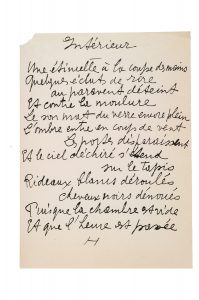 Intérieur
Une étincelle à la coupe des mains
Quelques éclats de rire
au paravent déteint
Et contre la moulure
Le son mat du verre encore plein
L'ombre entre en coup de vent
Les portes disparaissent
Et le ciel déchiré s'étend
sur le tapis
Rideaux blancs déroulés
cheveux noirs dénoués
Puisque la chambre est vide
Et que l'heure est passée